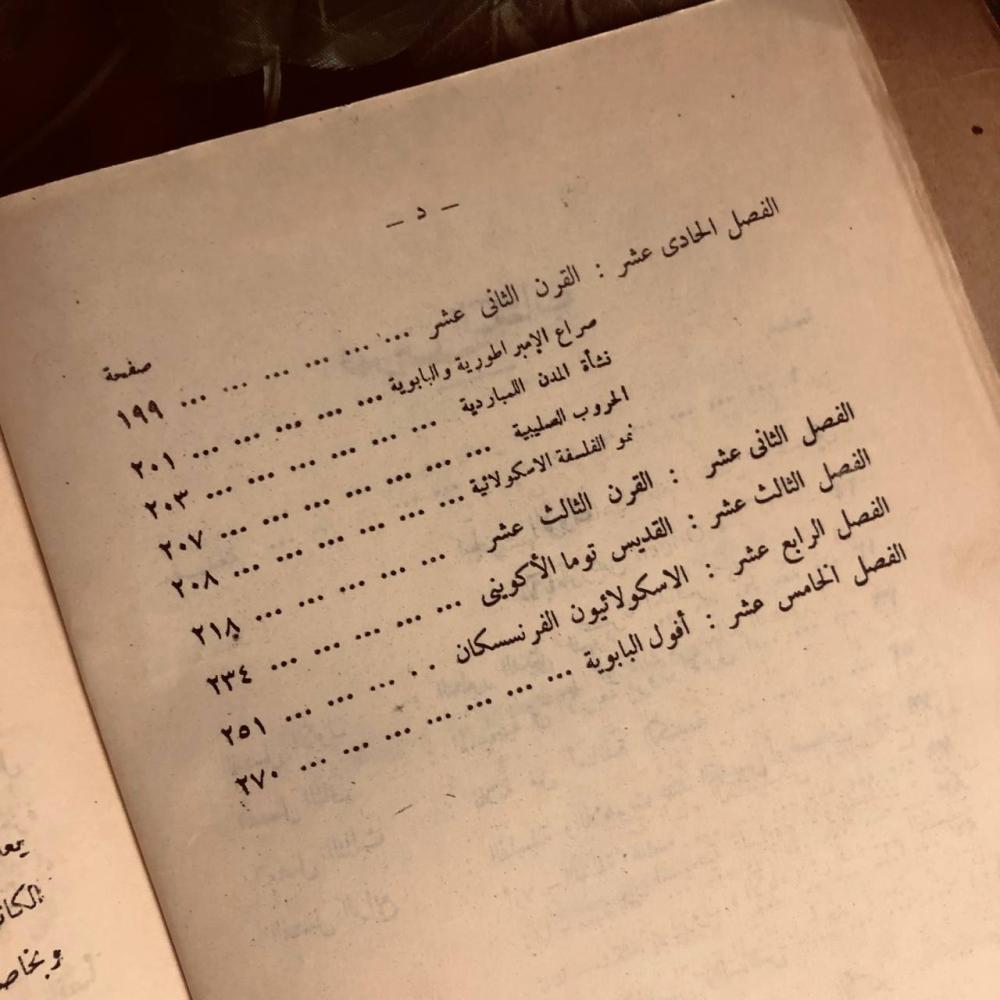 — د —
صفحة
الفصل الحادى عشر : القرن الثانى عشر ... ... ... ... ... ... ١٩٩
صراع الإمبراطورية والبابوية ... ... ... ... ... ٢٠١
نشأة المدن اللمباردية ... ... ... ... ... ... ٢٠٣
الحروب الصليبية ... ... ... ... ... ... ... ٢٠٧
نمو الفلسفة الاسكولائية ... ... ... ... ... ... ٢٠٨
الفصل الثانى عشر : القرن الثالث عشر ... ... ... ... ... ٢١٨
الفصل الثالث عشر : القديس توما الأكوينى ... ... ... ... ... ٢٣٤
الفصل الرابع عشر : الاسكولائيون الفرنسسكان . ... ... ... ٢٥١
الفصل الخامس عشر : أفول البابوية ... ... ... ... ... ... ... ٢٧٠
وبخاصة